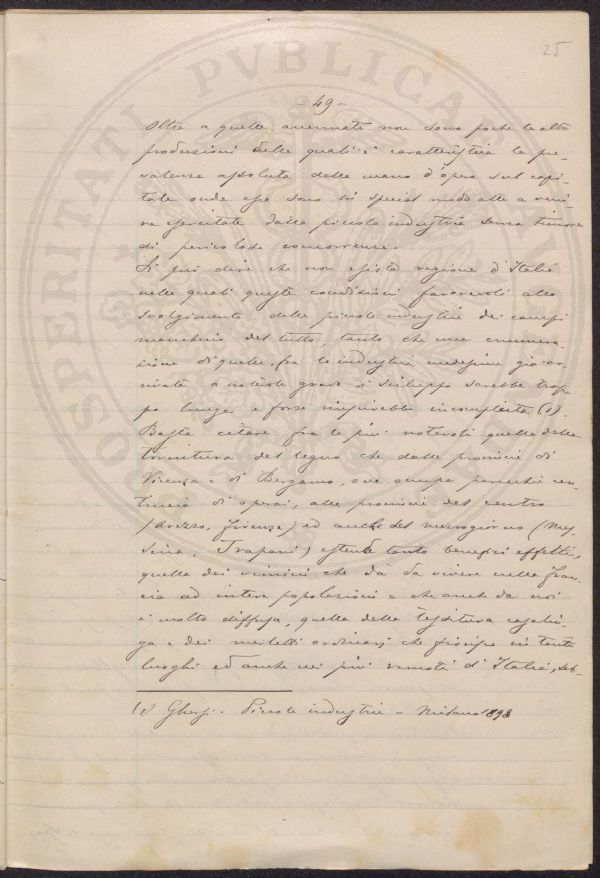 25
PROSPERITATI PVBLICAE
- 49 -
Oltre a quelle accennate non sono poche le altre
produzioni delle quali è caratteristica la pre-
valenza assoluta della mano d'opera sul capi-
tale onde esse sono in special modo atte a veni-
re esercitate dalla piccola industria senza timore
di pericolose concorrenze.
Si può dire che non esista regione d'Italia
nelle quali queste condizioni favorevoli allo
svolgimento delle piccole industrie dei campi
manchino del tutto, tanto che una enumera-
zione di quelle, fra le industrie medesime già ar-
rivate a notevole grado di sviluppo sarebbe trop
po lunga e forse riuscirebbe incompleta (1).
Basta citare fra le più notevoli quella della
tornitura del legno che dalle provincie di
Vicenza e di Bergamo, ove occupa parecchie cen-
tinaia di operai, alle provincie del centro
(Arezzo, Firenze) ed anche del mezzogiorno (Mes
sina, Trapani) estende tanto benefici effetti,
quella dei vimini che dà da vivere nella Fran-
cia ad intere popolazioni e che anche da noi
è molto diffusa, quella della tessitura casalin-
ga e dei merletti ordinari che fiorisce in tanti
luoghi ed anche nei più remoti d'Italia, seb-
(1) Ghersi. Piccole industrie - Milano 1898